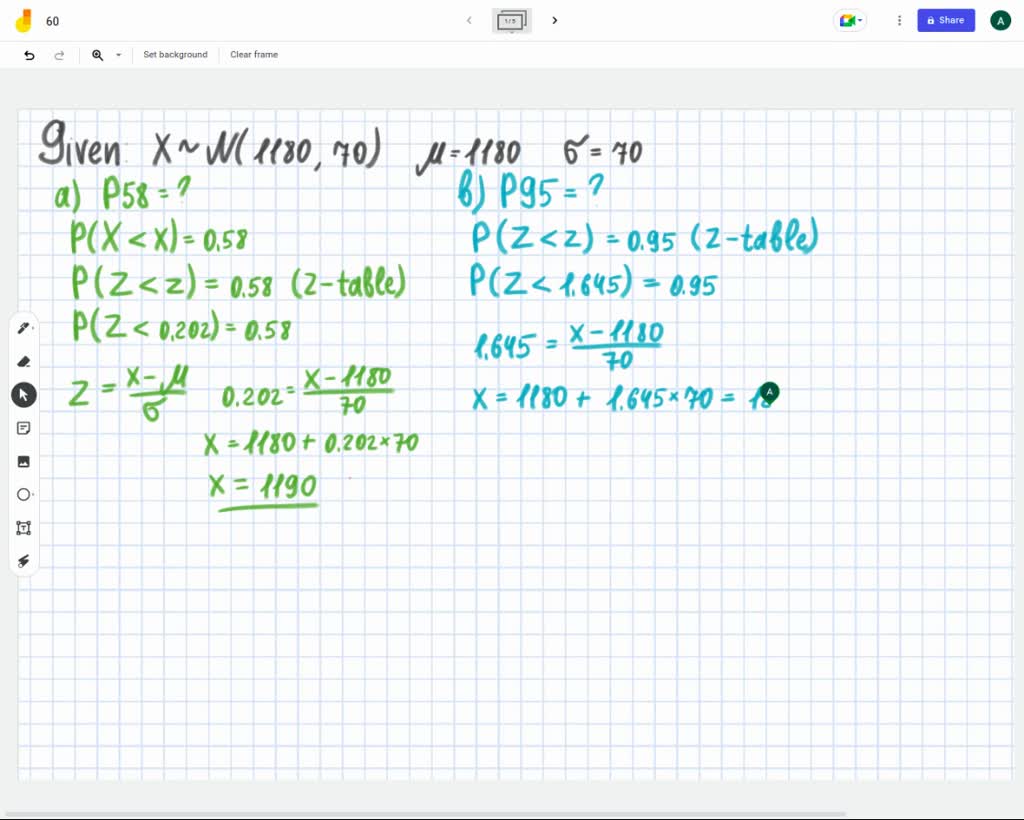 60
1/5
Share
A
Set background
Clear frame
Given: X ~ N(1180, 70) μ = 1180 σ = 70
a) P58 = ?
P(X < x) = 0.58
P(Z < z) = 0.58 (Z-table)
P(Z < 0.202) = 0.58
Z = (x - μ)/σ 0.202 = (x - 1180)/70
x = 1180 + 0.202 × 70
x = 1190
b) P95 = ?
P(Z < z) = 0.95 (Z-table)
P(Z < 1.645) = 0.95
1.645 = (x - 1180)/70
x = 1180 + 1.645 × 70 =
A